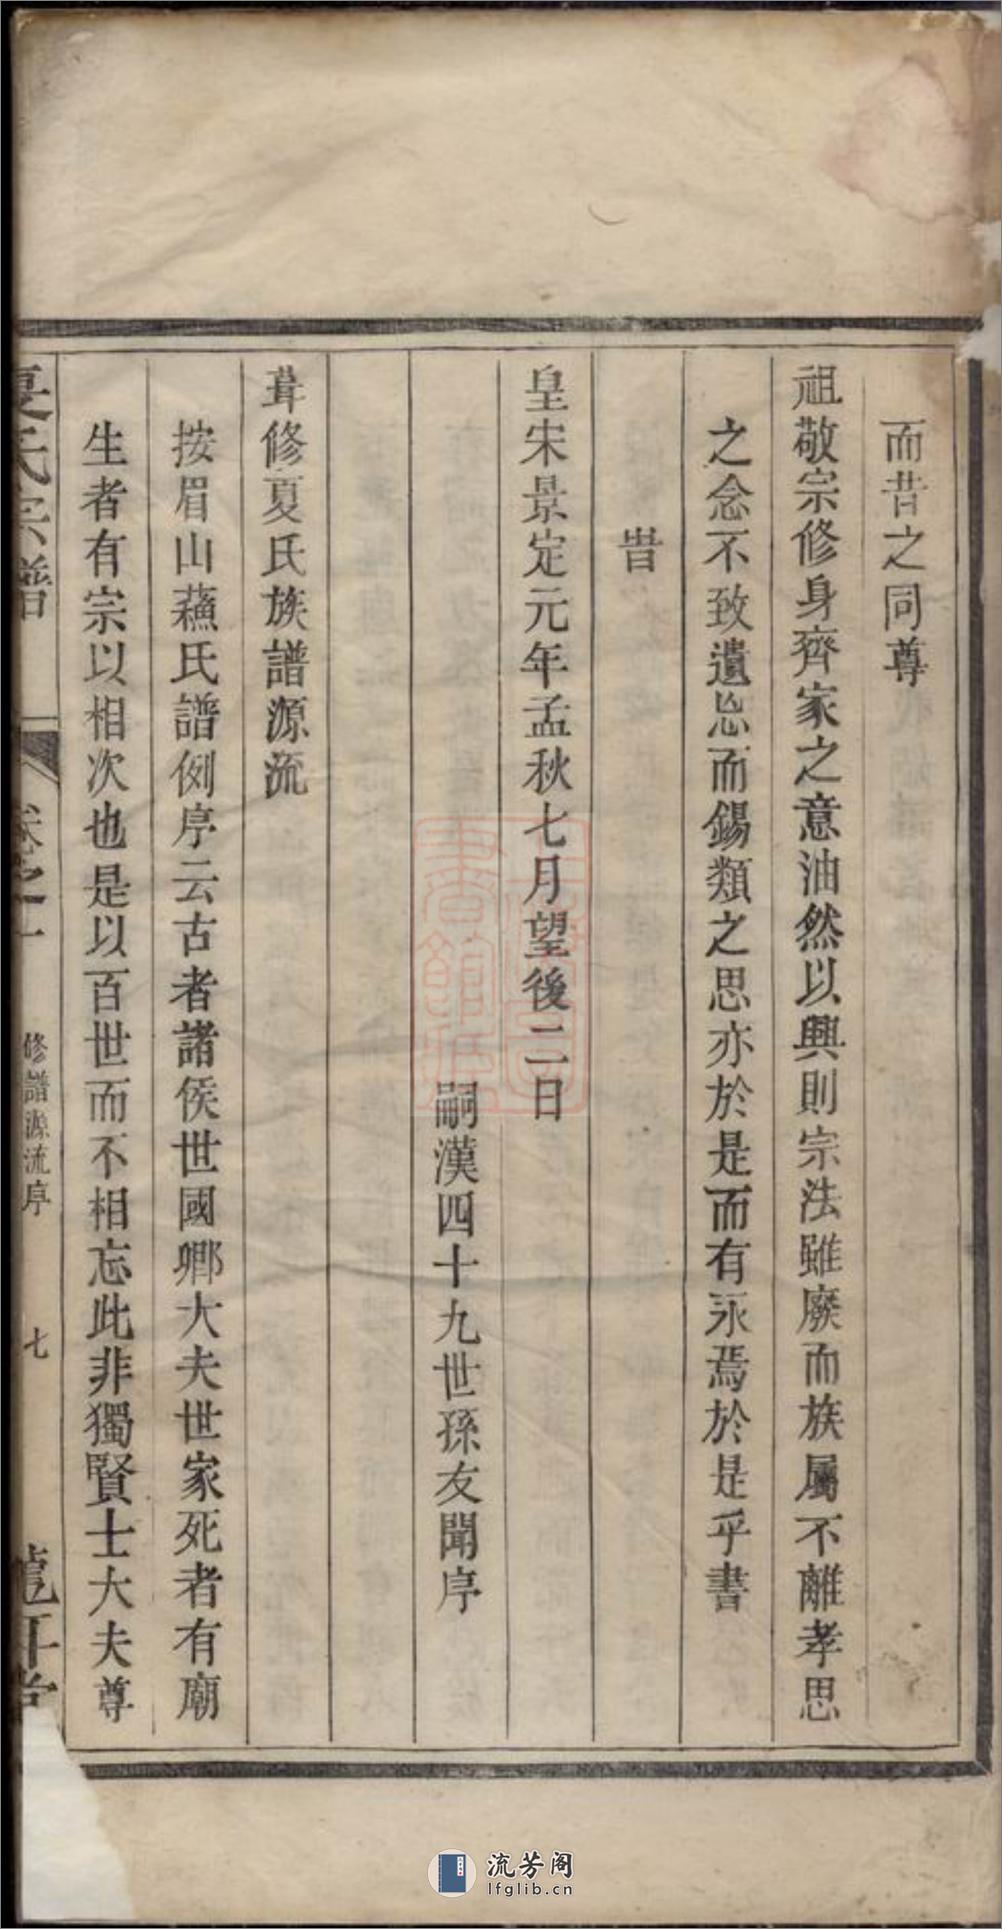 而昔之同尊
祖敬宗修身齊家之意油然以興則宗法雖廢而族屬不離孝思
之念不致遺忘而錫類之思亦於是而有永焉於是乎書
旹
皇宋景定元年孟秋七月望後二日
嗣漢四十九世孫友聞序
葺修夏氏族譜源流
按眉山蘓氏譜例序云古者諸侯世國卿大夫世家死者有廟
生者有宗以相次也是以百世而不相忘此非獨賢士大夫尊
夏氏宗譜
卷之一
修譜源流序
七
流芳阁
lfglib.cn